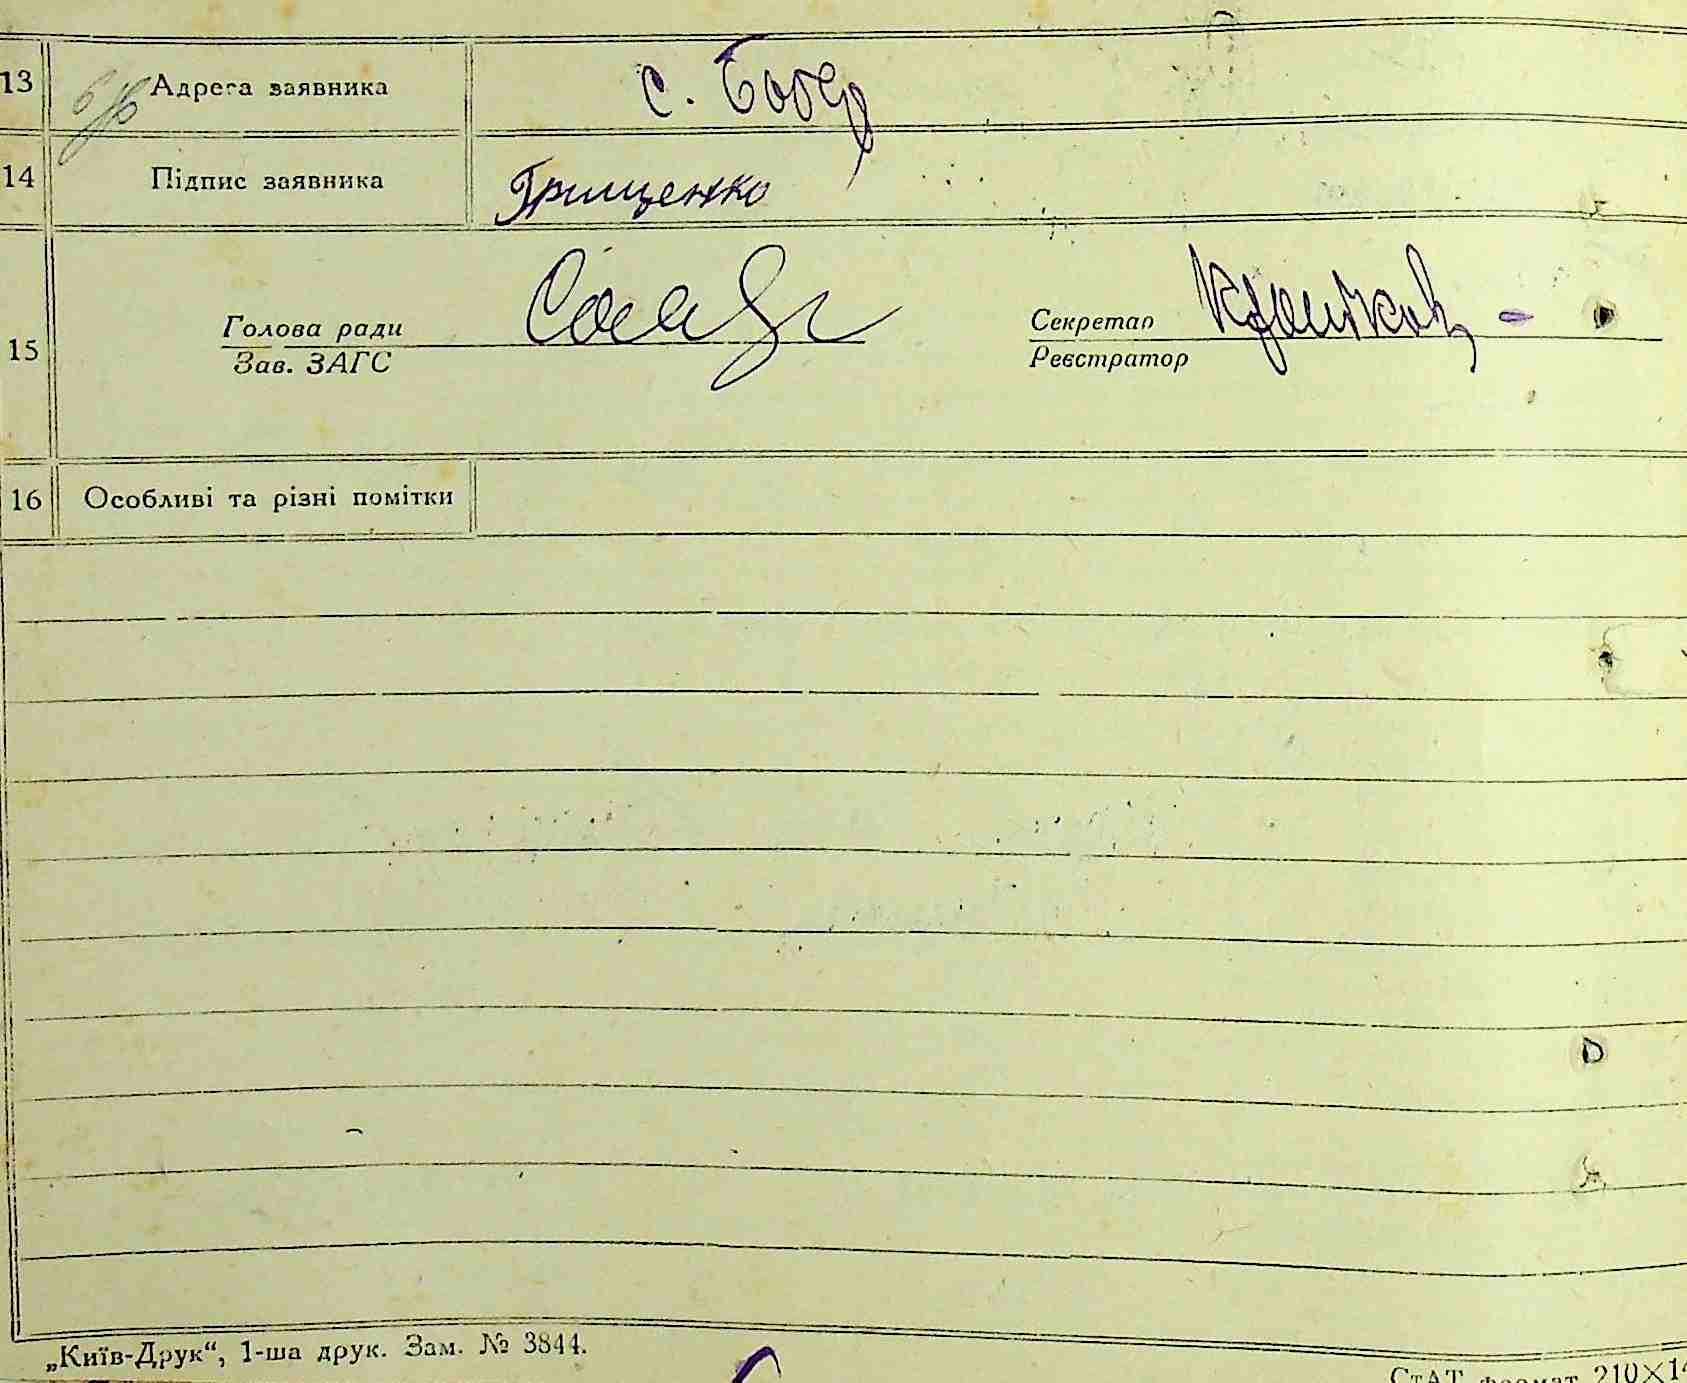 13 Адреса заявника с. Бобер
14 Підпис заявника Грищенко
15 Голова ради Секретар
Зав. ЗАГС Реєстратор
16 Особливі та різні помітки
„Київ-Друк“, 1-ша друк. Зам. № 3844.
СтАТ формат 210×14